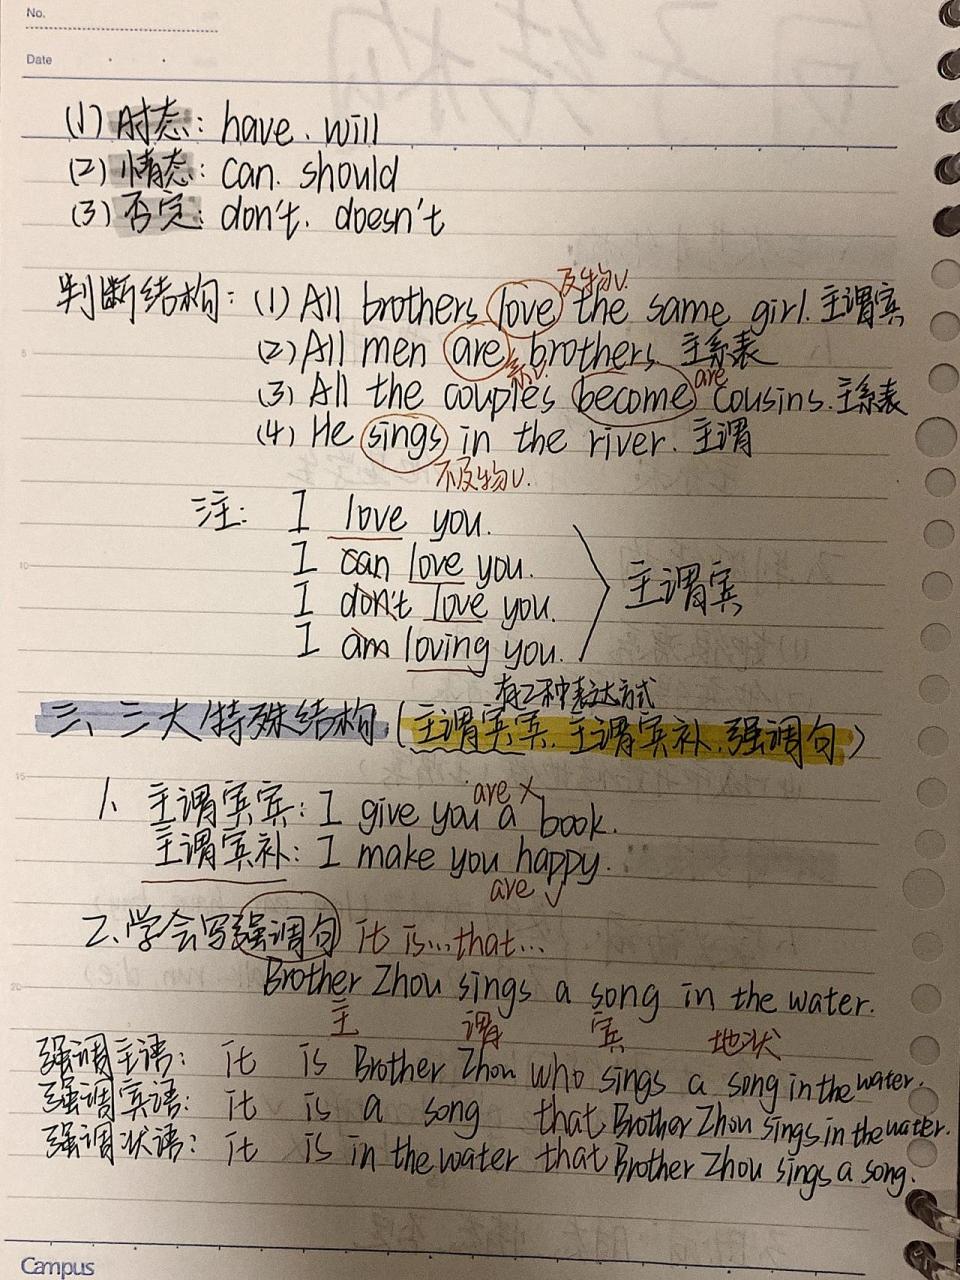 No.
Date
(1) 时态: have. will
(2) 情态: can. should
(3) 否定: don't. doesn't
及物v.
判断结构: (1) All brothers love the same girl. 主谓宾
(2) All men are brothers. 主系表
系v. are
(3) All the couples become cousins. 主系表
(4) He sings in the river. 主谓
不及物v.
注: I love you.
I can love you.
I don't love you.
主谓宾
I am loving you.
有2种表达方式
三、三大特殊结构 (主谓宾宾. 主谓宾补. 强调句)
are ×
1、主谓宾宾: I give you a book.
主谓宾补: I make you happy.
are √
2、学会写强调句 it is...that...
Brother Zhou sings a song in the water.
主 谓 宾 地状
强调主语: it is Brother Zhou who sings a song in the water.
强调宾语: it is a song that Brother Zhou sings in the water.
强调状语: it is in the water that Brother Zhou sings a song.
Campus